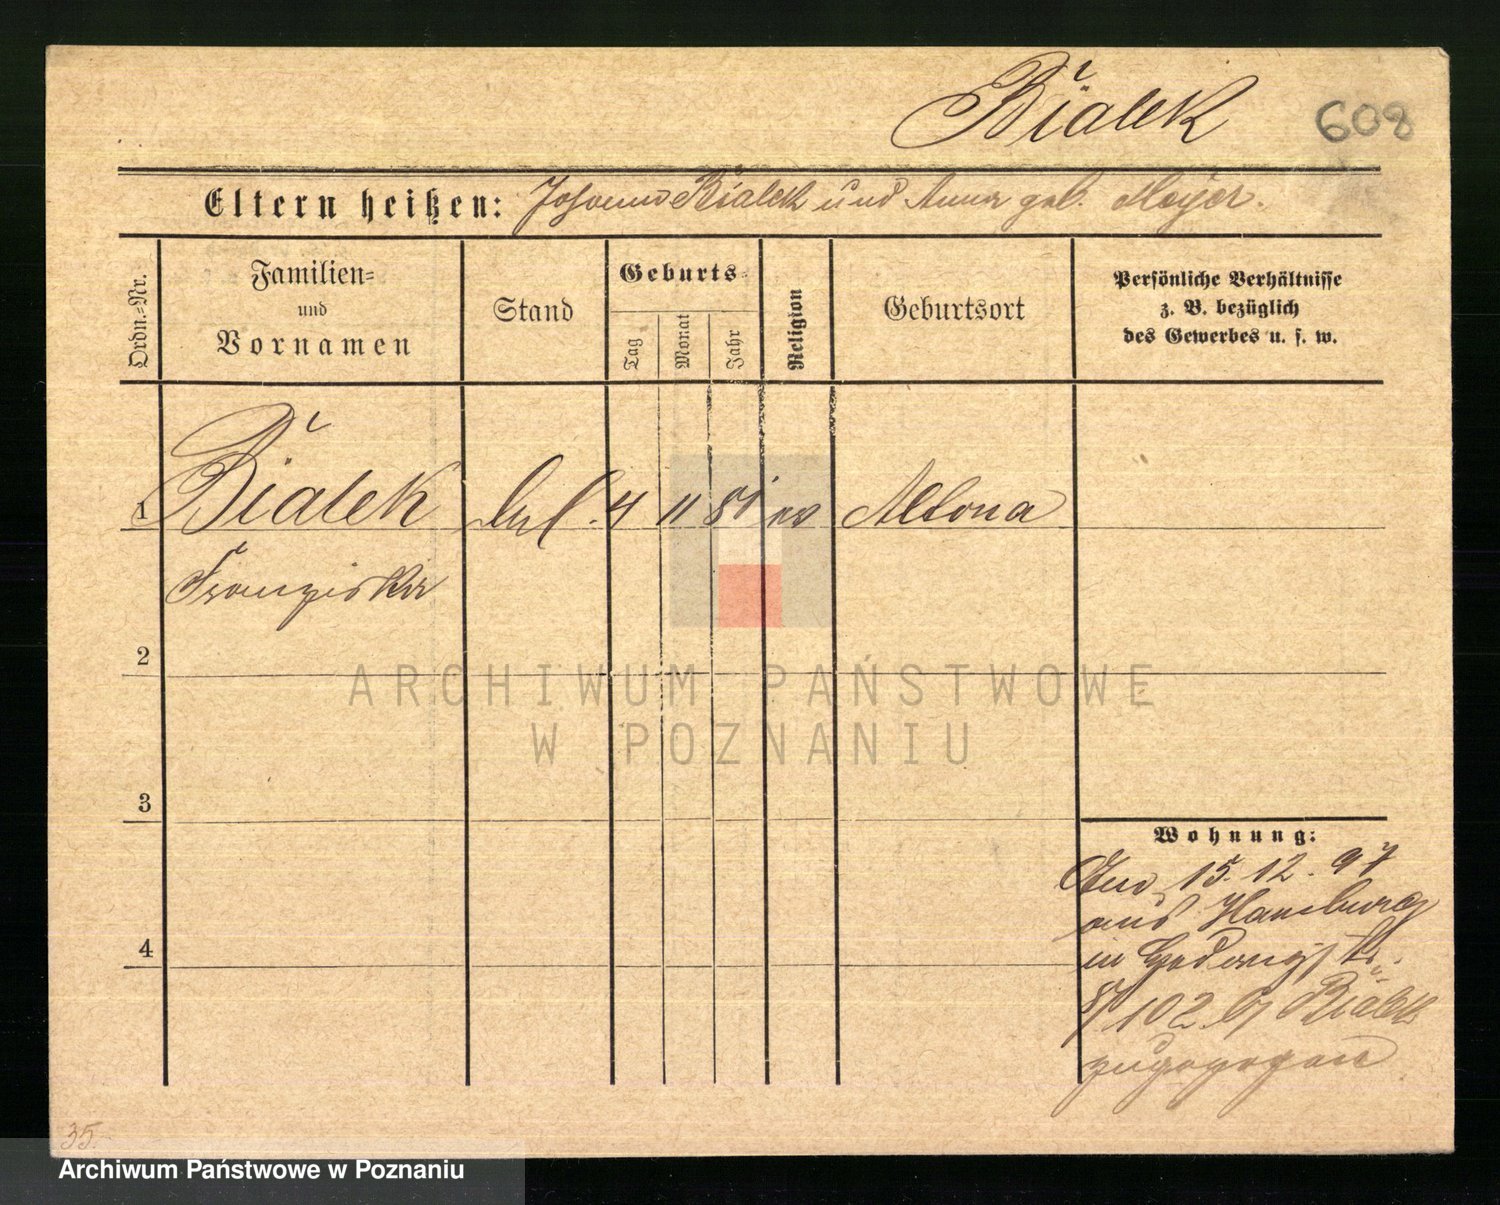 Bialek
608
Eltern heißen: Johann Bialek und Anna geb. Meyer.
Ordn.-Nr.
Familien-
und
Vornamen
Stand
Geburts-
Tag
Monat
Jahr
Religion
Geburtsort
Persönliche Verhältnisse
z. B. bezüglich
des Gewerbes u. s. w.
1 Bialek led. 4 11 81 ev Altona
Franziska
2
3
4
Wohnung:
Am 15.12.97
aus Hamburg
in
102 Bialek
zugezogen
35.
ARCHIWUM PAŃSTWOWE
W POZNANIU
Archiwum Państwowe w Poznaniu